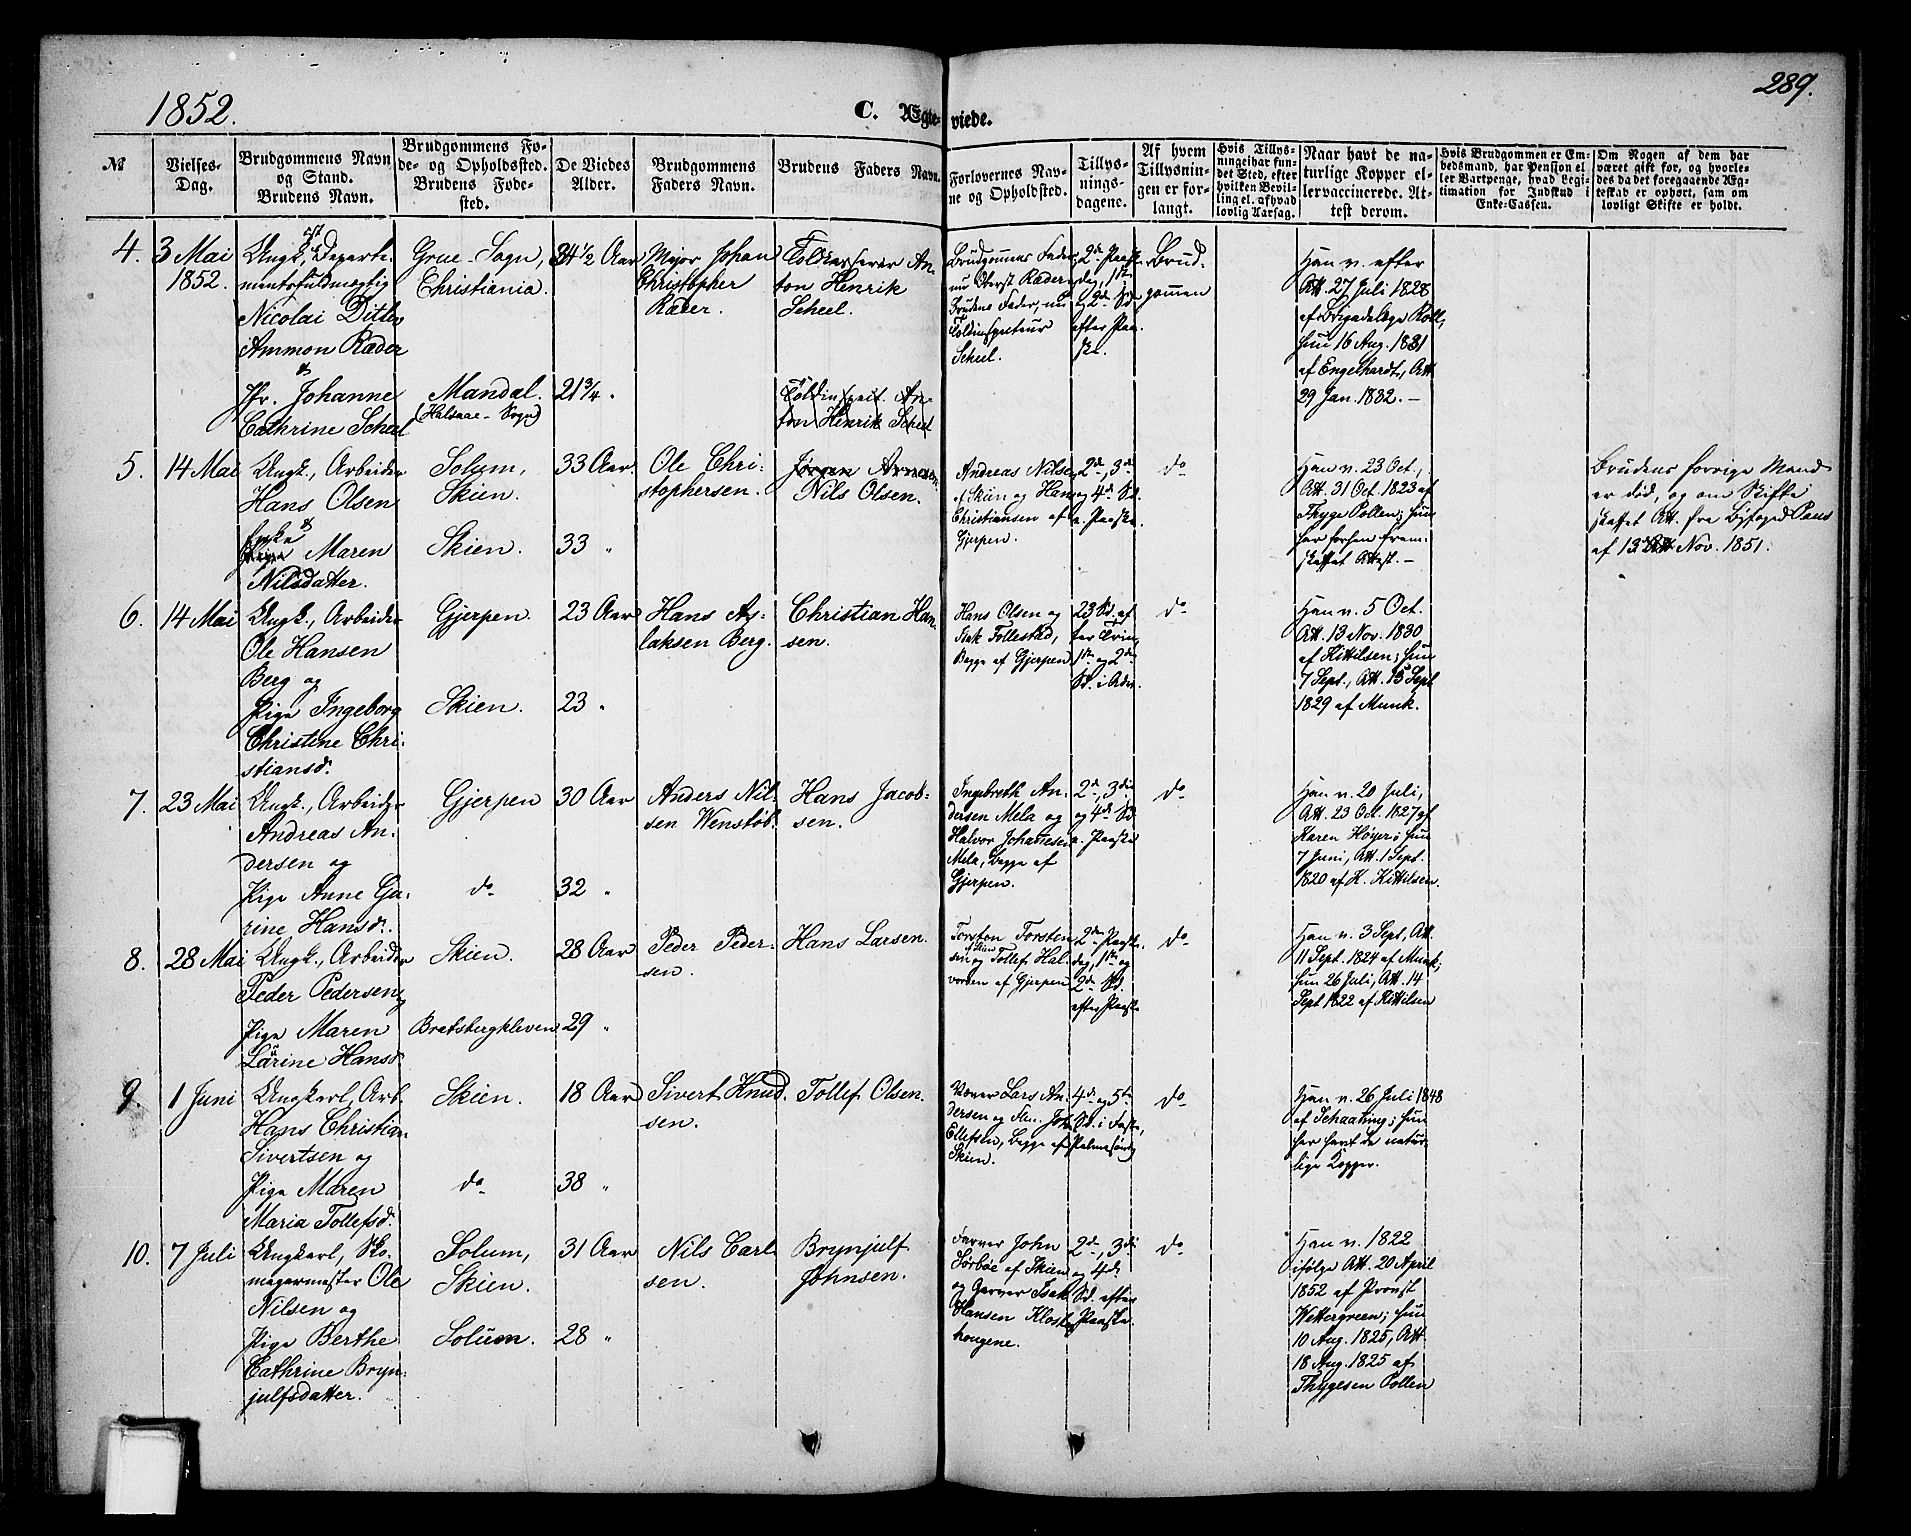 1852.
C. Ægteviede.
289.
№
Vielses-
Dag.
Brudgommens Navn
og Stand.
Brudens Navn.
Brudgommens Fø-
de- og Opholdssted.
Brudens Føde-
sted.
De Viedes
Alder.
Brudgommens
Faders Navn.
Brudens Faders Navn.
Forlovernes Nav-
ne og Opholdsted.
Tillys-
nings-
dagene.
Af hvem
Tillysnin-
gen er for-
langt.
Hvis Tillys-
ning ei har fun-
det Sted, efter
hvilken Bevil-
ling el. af hvad
lovlig Aarsag.
Naar havt de na-
turlige Kopper el-
ler vaccinerede. At-
test derom.
Hvis Brudgommen er Em-
bedsmand, har Pension el-
ler Vartpenge, hvad Legi-
timation for Indskud i
Enke-Cassen.
Om Nogen af dem har
været gift før, og hvorle-
des da det foregaaende Æg-
teskab er ophørt, samt om
lovligt Skifte er holdt.
4.
3 Mai
1852.
Ungk., Departe-
mentsfuldmægtig
Nicolai Ditlev
Ammon Ræder
&
Jfr. Johanne
Cathrine Scheel
Grue-Sogn,
Christiania.
Mandal.
(Halsaae-Sogn)
24 1/2 Aar
21 3/4 "
Major Johan
Christopher
Ræder.
Toldkasserer An-
ton Henrik
Scheel.
Toldinspect. An-
ton Henrik Scheel
Brudgommens Fader,
nu Oberst Ræder
Brudens Fader, nu
Toldinspecteur
Scheel.
2den Paaske-
dag, 1ste
og 2den Sd.
efter Paa-
ske.
Brud-
gommen
Han v. efter
Att. 27 Juli 1828
af Brigadelæge Roll,
hun 16 Aug. 1831
af Engelhardt, Att.
29 Jan. 1832. –
5.
14 Mai
Ungk., Arbeider
Hans Olsen
&
Enke
Pige Maren
Nilsdatter.
Solum,
Skien.
Skien.
33 Aar.
33 "
Ole Chri-
stophersen.
Jørgen Arnesen.
Nils Olsen.
Andreas Nilsen
af Skien og Hans
Christiansen af
Gjerpen.
2de, 3die
og 4de Sd.
e. Paaske.
do
Han v. 23 Oct.,
Att. 31 Oct. 1823 af
Thyge Pollen; hun
har forhen frem-
skaffet Attest. –
Brudens forrige Mand
er død, og om Skifte
skaffet Att. fra Byfoged Paus
af 13de Nov. 1851.
6.
14 Mai
Ungk., Arbeider
Ole Hansen
Berg og
Pige Ingeborg
Christine Chri-
stiansd.
Gjerpen.
Skien.
23 Aar
23 "
Hans As-
laksen Berg.
Christian Han-
sen.
Hans Olsen og
Isak Follestad,
Begge af Gjerpen
23 Sd. ef-
ter Trin.,
1ste og 2den
Sd. i Adv.
do
Han v. 5 Oct.
Att. 13 Nov. 1830
af Kittilsen; hun
7 Sept., Att. 15 Sept
1829 af Munk.
7.
23 Mai
Ungk., Arbeider
Andreas An-
dersen og
Pige Anne Gu-
rine Hansd.
Gjerpen
do
30 Aar
32 "
Anders Nil-
sen Wenstøb.
Hans Jacob-
sen.
Ingebreth An-
dersen Mela og
Halvor Johannesen
Mela, begge af
Gjerpen.
2de, 3die
og 4de Sd.
e. Paaske
do
Han v. 20 Juli,
Att. 23 Oct. 1827 af
Karen Høyer; hun
7 Juni, Att. 1 Sept.
1820 af K. Kittilsen.
8.
28 Mai
Ungk., Arbeider
Peder Pedersen &
Pige Maren
Larine Hansd.
Skien.
Bratsbergkleven
28 Aar
29 "
Peder Peder-
sen.
Hans Larsen.
Torsten Torsten-
af Skien
sen og Tollef Hal-
vorsen af Gjerpen
2den Paaske-
dag, 1ste og
2den Sd.
efter Paaske
do
Han v. 3 Sept, Att.
11 Sept. 1824 af Munk;
hun 26 Juli, Att. 14
Sept 1822 af Kittilsen
9.
1 Juni
Ungkarl, Arb.
Hans Christian
Sivertsen og
Pige Maren
Maria Tollefsd.
Skien.
do
18 Aar
38 "
Sivert Knud-
sen.
Tollef Olsen.
Lars An-
dersen og Joh.
Ellefsen, begge af
Skien.
4de og 5te
Sd. i Faste,
Palmesøndag
do
Han v. 26 Juli 1848
af Schaaning; hun
har havt de natur-
lige Kopper.
10.
7 Juli
Ungkarl, Sko-
magermester Ole
Nilsen og
Pige Berthe
Cathrine Bryn-
julfsdatter.
Solum,
Skien.
Solum.
31 Aar
28 "
Nils Carl-
sen.
Brynjulf
Johnsen.
Farver John
Sørbøe af Skien
og Garver Isak
Hansen Kloster-
hougene.
2de, 3die
og 4de
Sd. efter
Paaske.
do
Han v. 1822
ifølge Att. 20 April
1852 af Provst
Wettergreen; hun
10 Aug. 1825, Att.
18 Aug. 1825 af
Thygesen Pollen